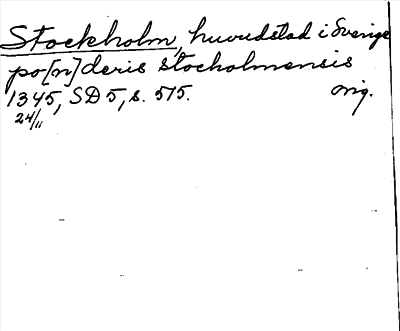 Stockholm, huvudstad i Sverige
po[n]deris stocholmensis
1345, SD5, s. 515. orig.
24/11